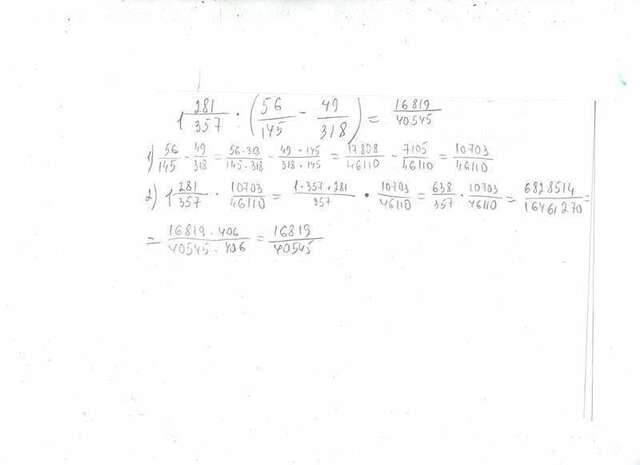 1 281/357 : (56/145 - 49/318) = 16819/40545
1) 56/145 - 49/318 = 56·318/145·318 - 49·145/318·145 = 17808/46110 - 7105/46110 = 10703/46110
2) 1 281/357 · 10703/46110 = 1·357+281/357 · 10703/46110 = 638/357 · 10703/46110 = 6828514/16461270 =
= 16819·406/40545·406 = 16819/40545